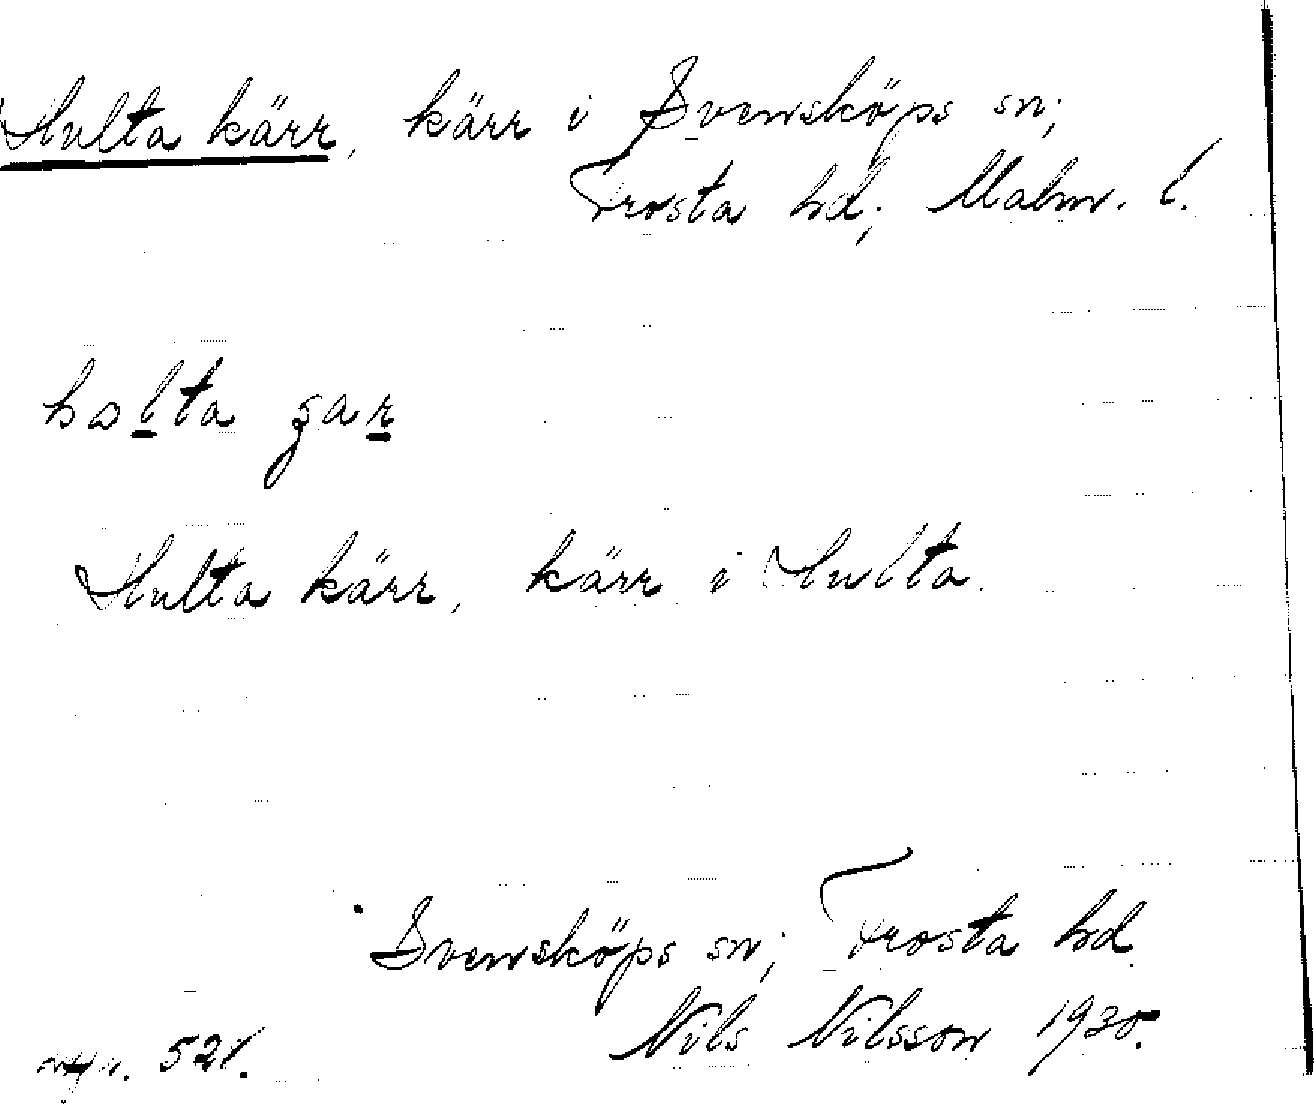 Hulta kärr, kärr i Svensköps sn;
Frosta hd; Malm. l.
halta gar
Hulta kärr, kärr i Hulta.
Svensköps sn; Frosta hd
Nils Nilsson 1930.
521.